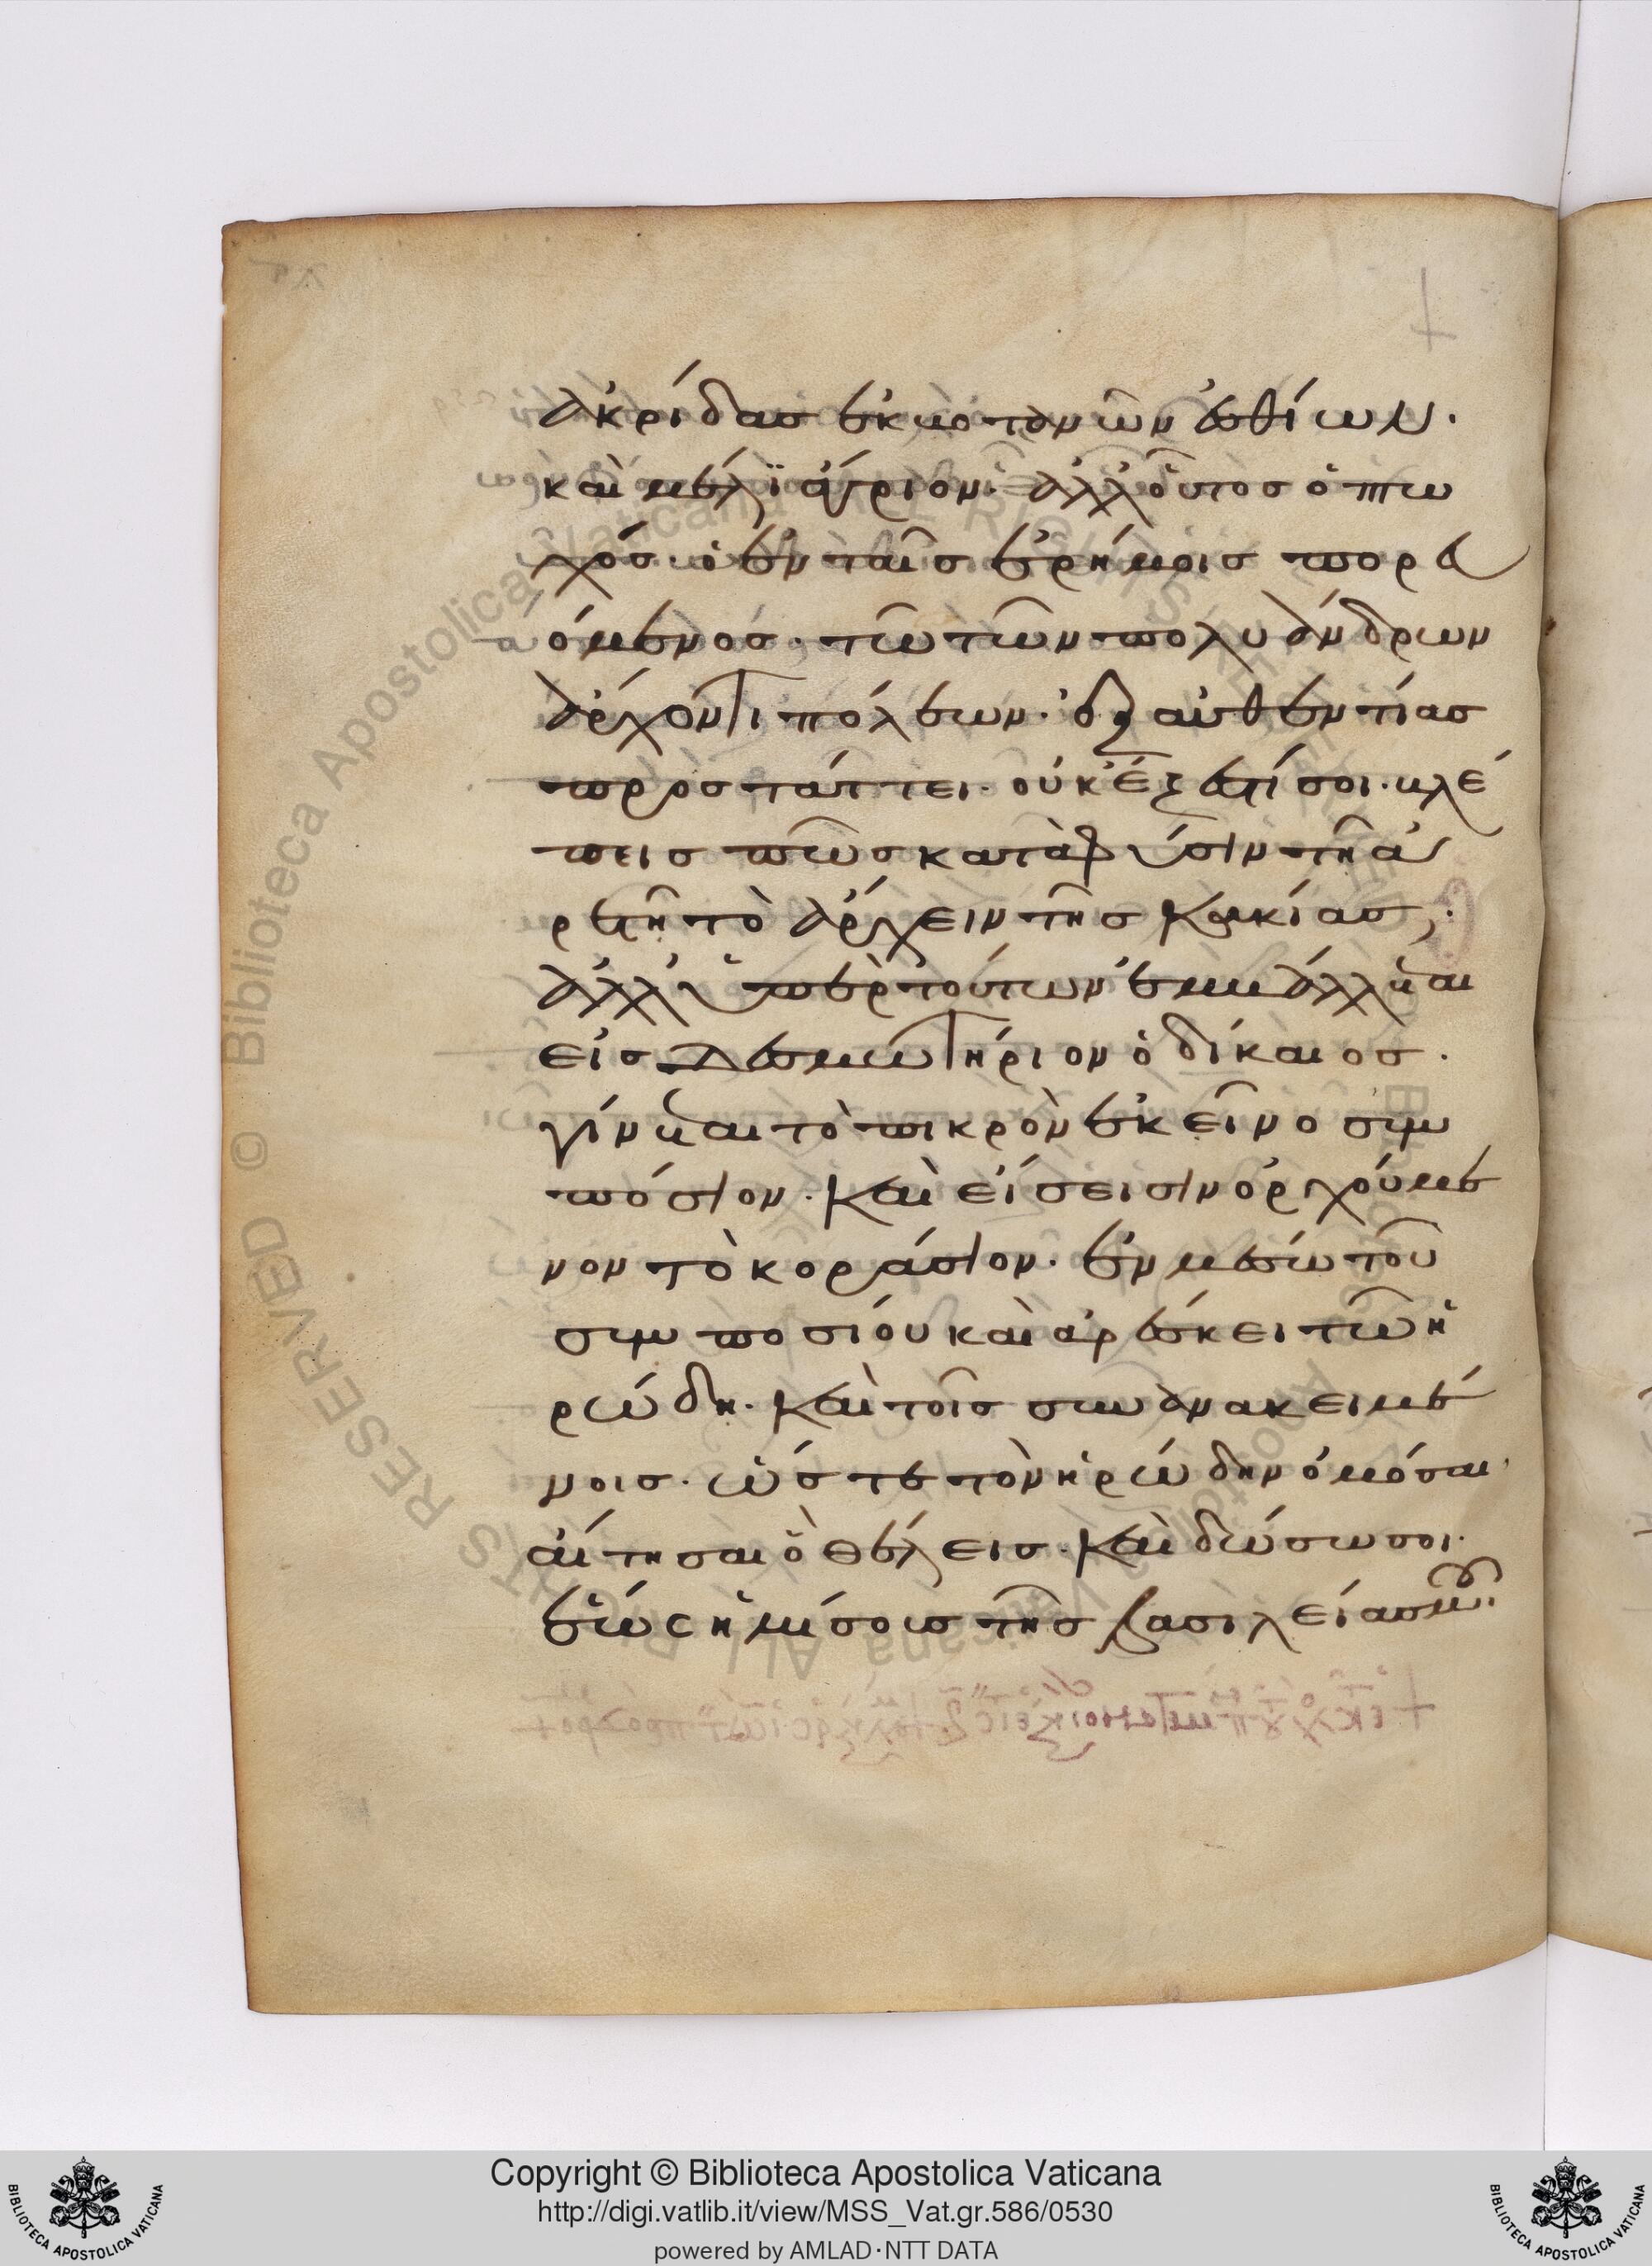 ἀκρίδας ἐκ κοτανῶν ἐσθίων.
καὶ μέλϊ ἄγριον. ἀλλ' οὗτος ὁ πτω
χός. ὁ ἐν ταῖς ἐρήμοις πορευ
όμενος. τῶ τῶν πολυάνδρων
ἄρχοντι πόλεων. ἐξ αὐθεντίας
προστάττει. οὐκ ἔξεστί σοι. βλέ
πεις πῶς κατάλυσιν τῇ ἀ
ρετῇ τὸ ἄρχειν τῆς κακίας;
ἀλλ' ὑπὲρ τούτων ἐμβάλλεται
εἰς δεσμωτήριον ὁ δίκαιος.
γίνεται τὸ πικρὸν ἐκεῖνο συμ
πόσιον. καὶ εἴσεισιν ὀρχούμε
νον τὸ κοράσιον. ἐν μέσω τοῦ
συμποσίου καὶ ἀρέσκει τῶ ἡ
ρώδη. καὶ τοῖς συνανακειμέ
νοις. ὥστε τὸν ἡρώδην ὀμόσαι.
αἴτησαι ὃ θέλεις. καὶ δώσω σοι.
ἕως ἡμίσους τῆς βασιλείας μου.
Copyright © Biblioteca Apostolica Vaticana
http://digi.vatlib.it/view/MSS_Vat.gr.586/0530
powered by AMLAD·NTT DATA
BIBLIOTECA APOSTOLICA VATICANA
BIBLIOTECA APOSTOLICA VATICANA